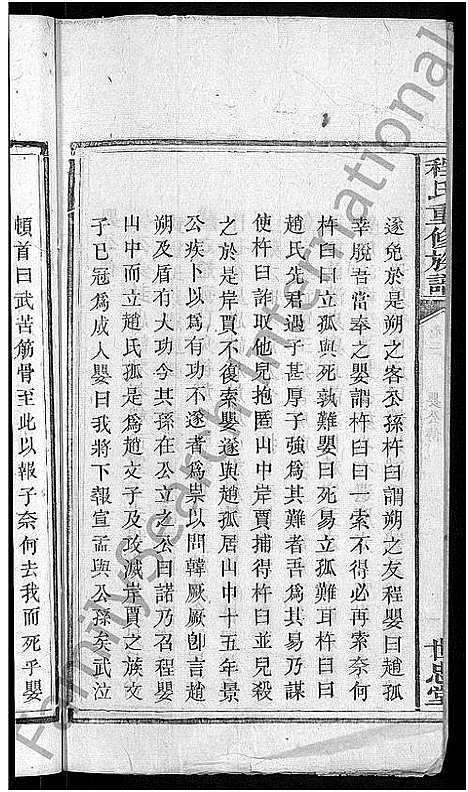 程氏重修族譜
世忠堂
遂免於是朔之客公孫杵臼謂朔之友程嬰曰趙孤
幸脫吾當奉之嬰謂杵臼曰一索不得必再索奈何
杵臼曰立孤與死孰難嬰曰死易立孤難耳杵臼曰
趙氏先君遇子甚厚子強爲其難者吾爲其易乃謀
使杵臼詐取他兒抱匿山中岸賈捕得杵臼並兒殺
之於是岸賈不復索嬰遂與趙孤居山中十五年景
公疾卜以爲有功不遂者爲祟以問韓厥厥卽言趙
朔及盾有大功今其孫在公立之公曰諾乃召程嬰
山中而立趙氏孤是爲趙文子及攻滅岸賈之族文
子已冠爲成人嬰曰我將下報宣孟與公孫矣武泣
頓首曰武苦筋骨至此以報子奈何去我而死乎嬰
FamilySearch International